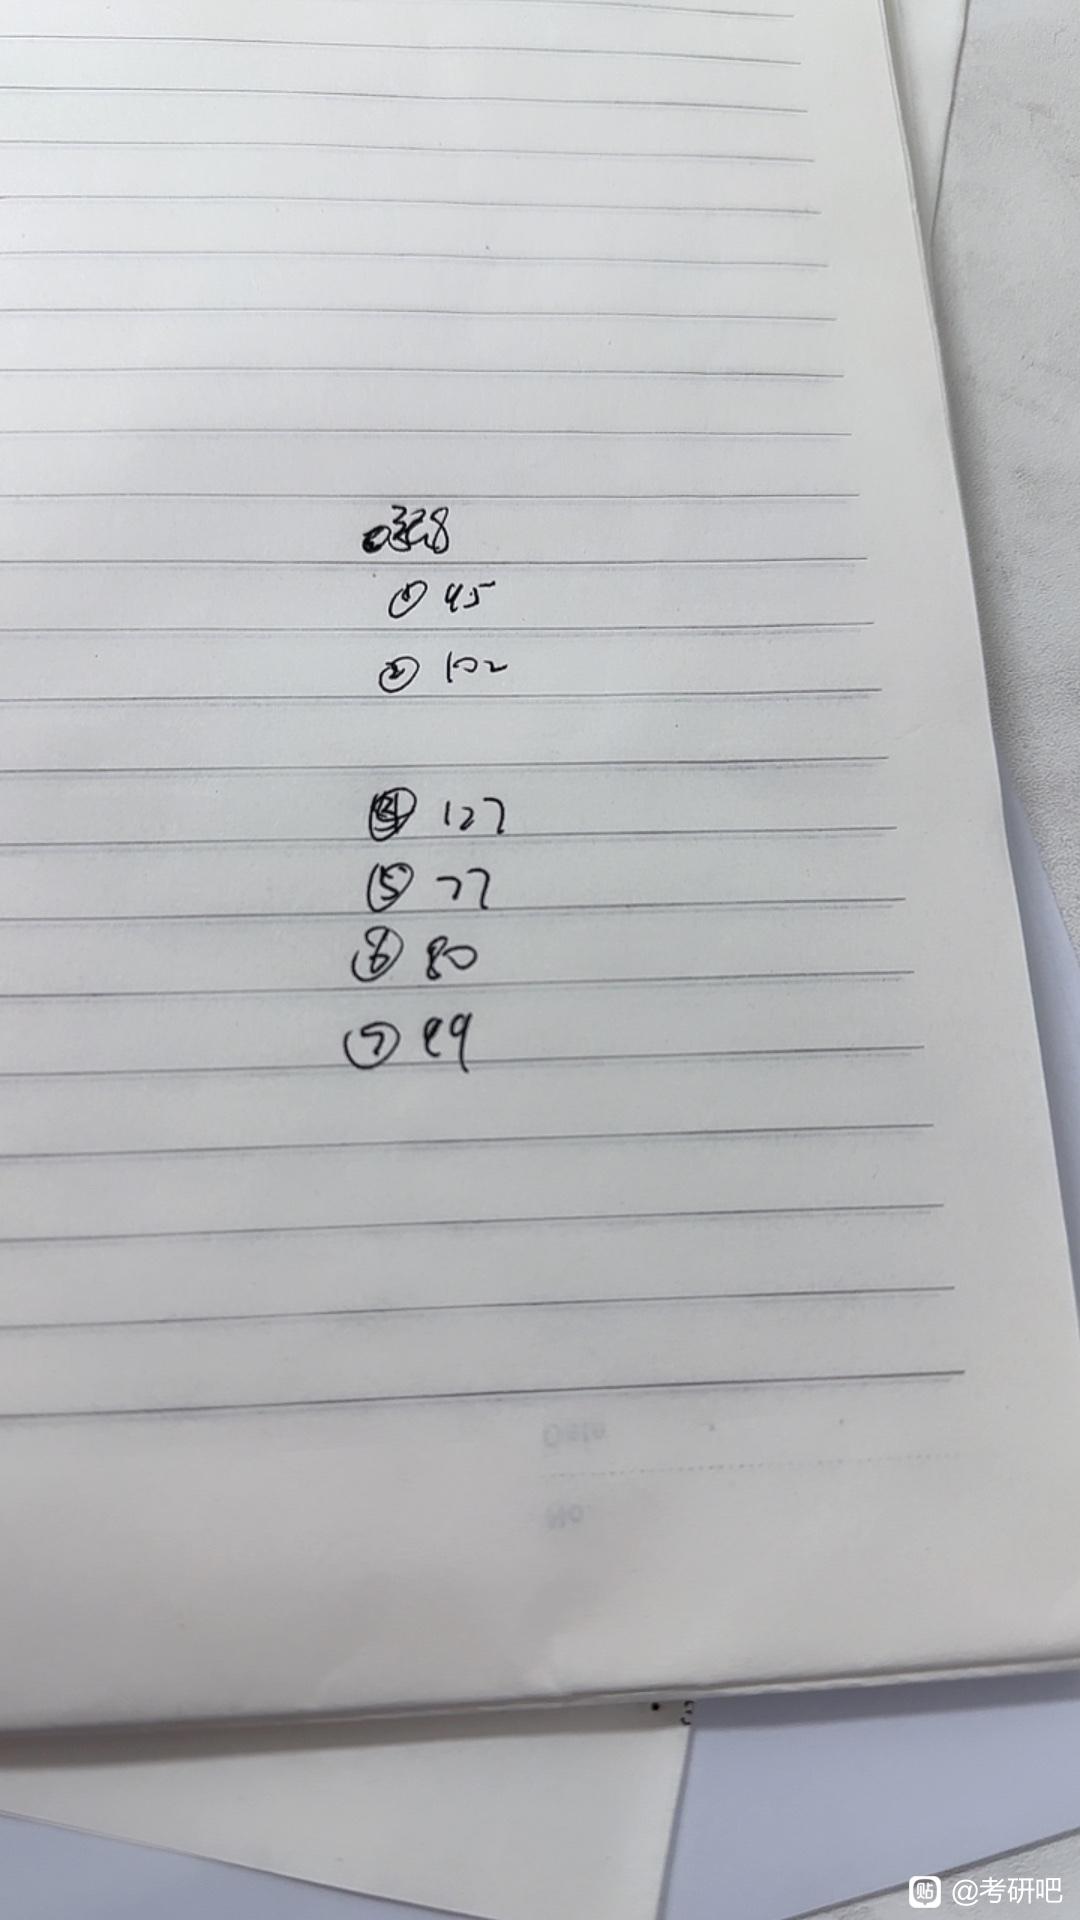 ① 95
② 102
④ 127
⑤ 77
⑥ 80
⑦ 89
Date
No
贴 @考研吧